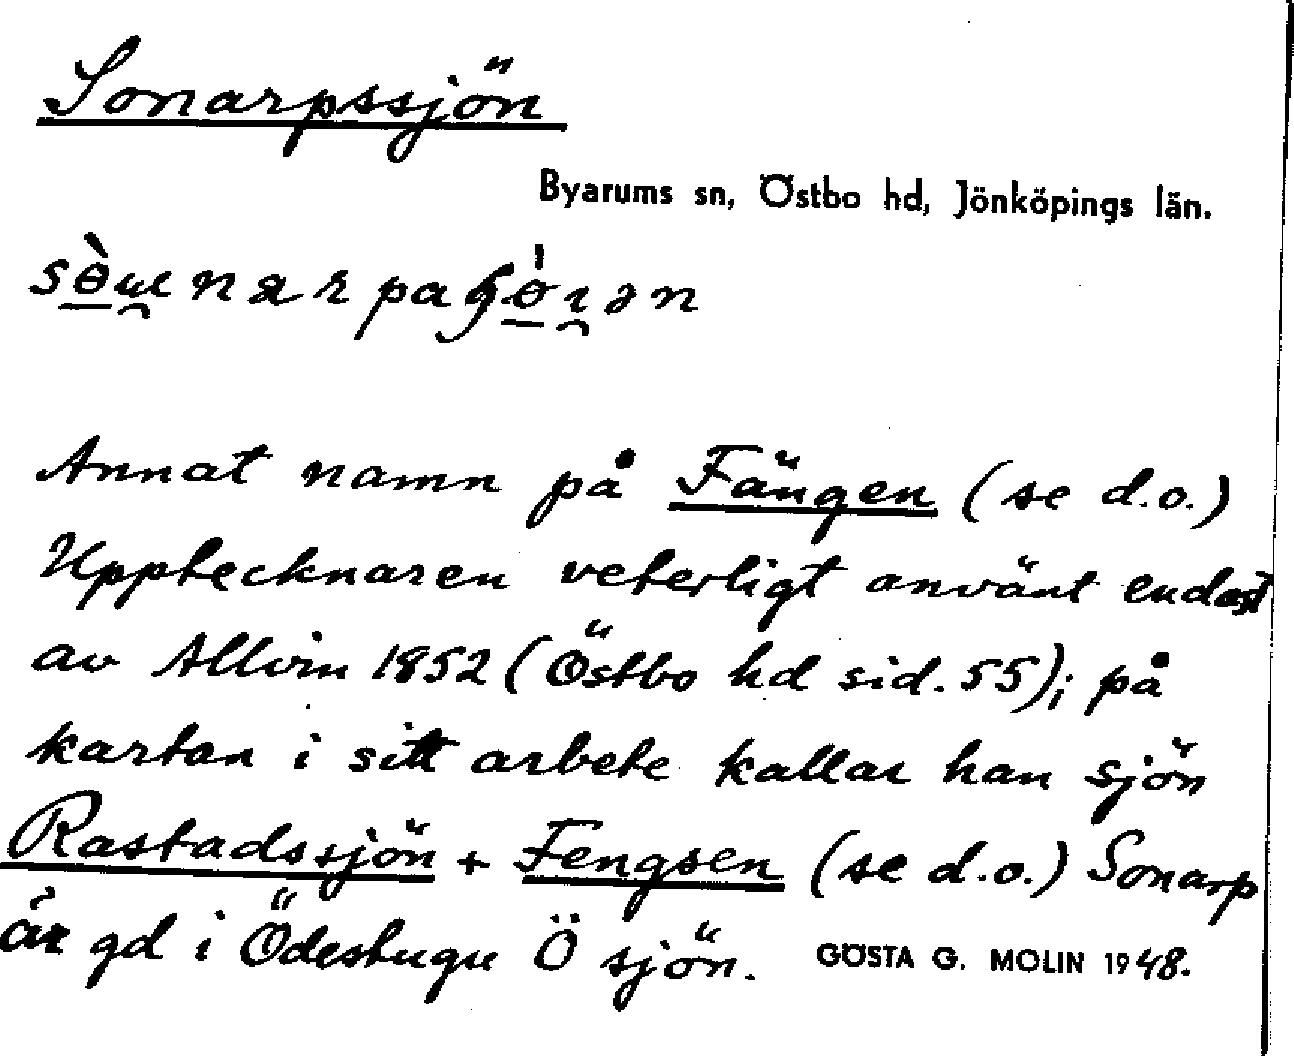 Sonarpssjön
Byarums sn, Östbo hd, Jönköpings län.
Annat namn på Fängen (se d.o.)
Upptecknaren veterligt använt endast
av Allvin 1852 (Östbo hd sid. 55); på
kartan i sitt arbete kallar han sjön
Rastadssjön + Fengsen (se d.o.) Sonarp
är gd i Ödestugu Ö sjön. GÖSTA G. MOLIN 1948.